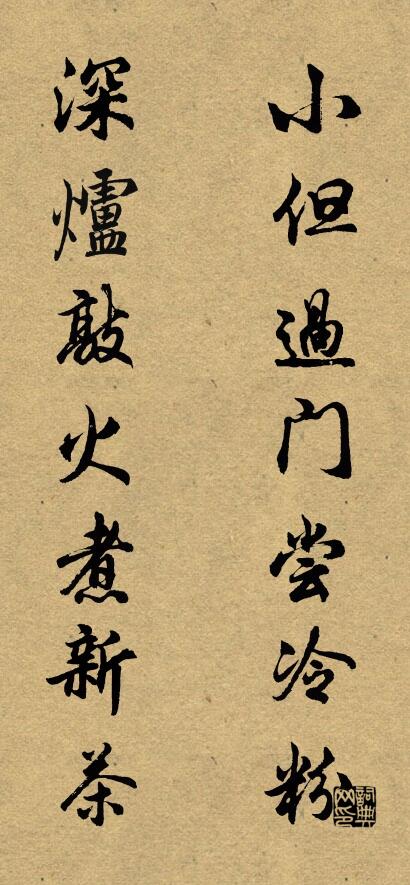 小但過门尝冷粉
深爐敲火煮新茶
詞典网印